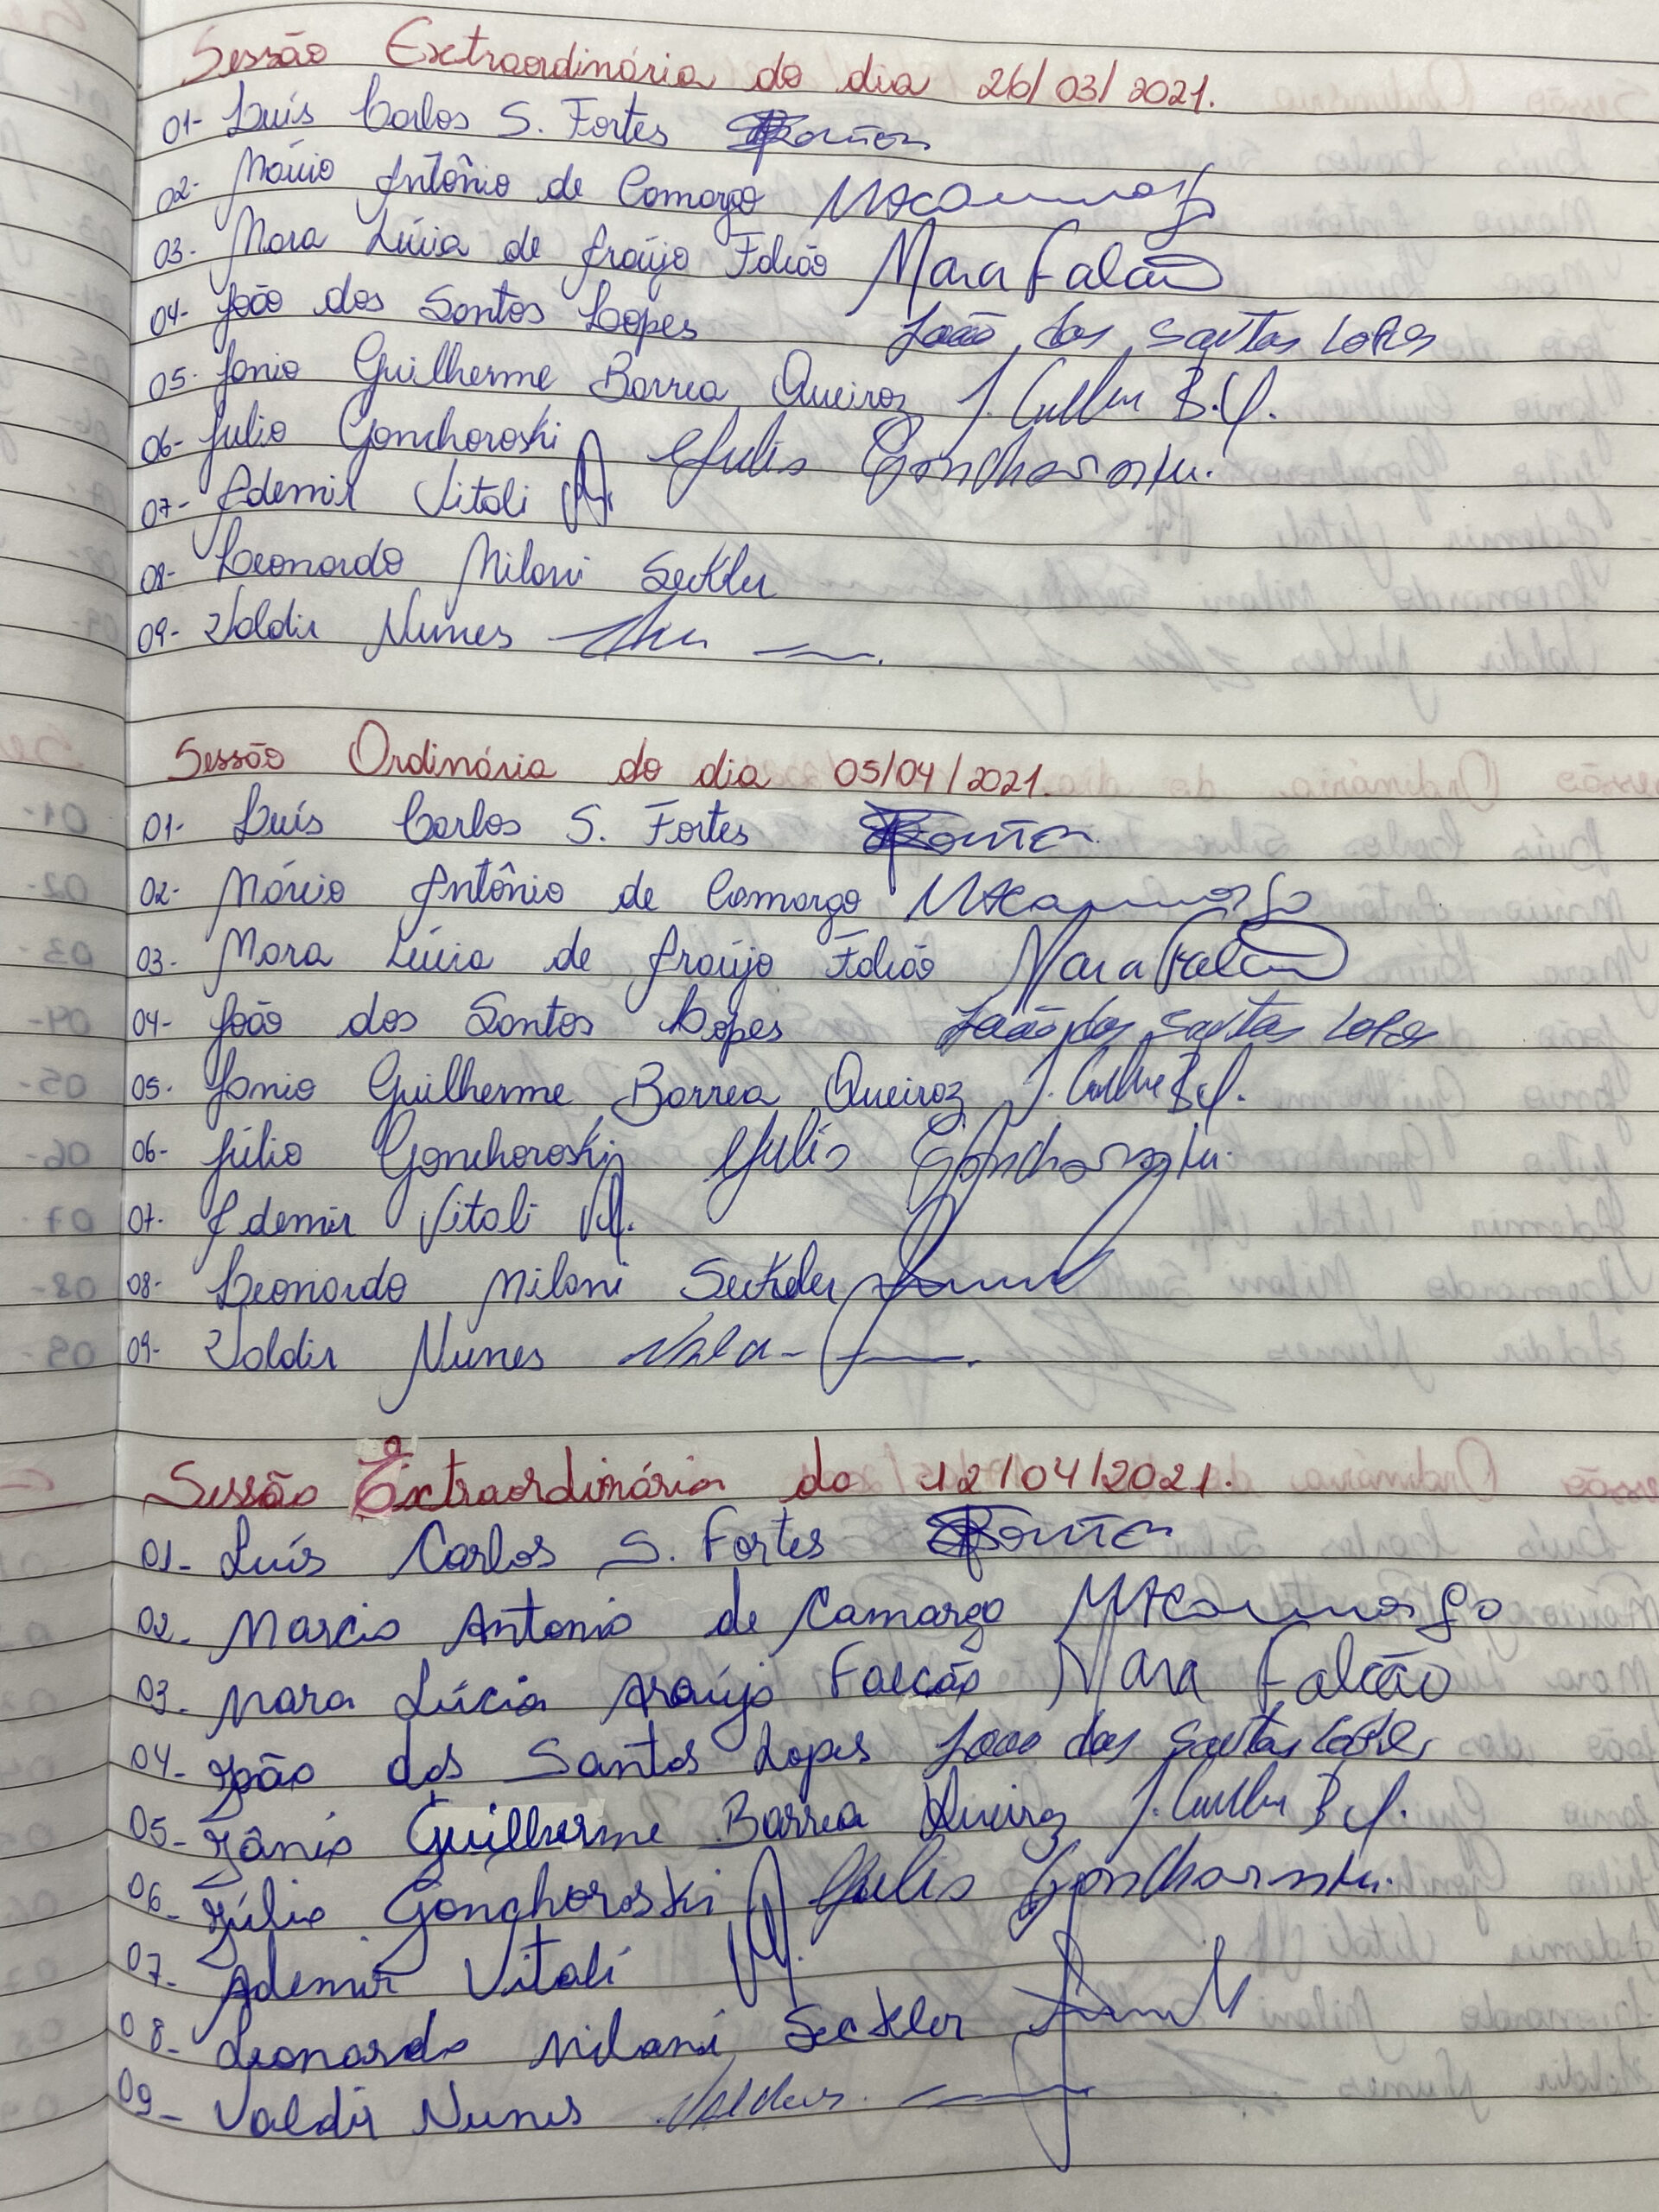 Sessão Extraordinária do dia 26/03/2021.
01- Luís Carlos S. Fortes
02- Márcio Antônio de Camargo MACamargo
03- Mara Lúcia de Araújo Falcão Mara Falcão
04- João dos Santos Lopes João dos Santos Lopes
05- Janio Guilherme Barrea Queiroz J. Guilher B.Q.
06- Julio Gonchoroski Julio Gonchoroski.
07- Ademir Vitali
08- Leonardo Milani Seckler
09- Valdir Nunes
Sessão Ordinária do dia 05/04/2021.
01- Luís Carlos S. Fortes
02- Márcio Antônio de Camargo MACamargo
03- Mara Lúcia de Araújo Falcão Mara Falcão
04- João dos Santos Lopes João dos Santos Lopes
05- Janio Guilherme Barrea Queiroz J. Guilher B.Q.
06- Júlio Gonchoroski Julio Gonchoroski.
07- Ademir Vitali
08- Leonardo Milani Seckler
09- Valdir Nunes
Sessão Extraordinária do 12/04/2021.
01- Luís Carlos S. Fortes
02- Marcio Antonio de Camargo MACamargo
03- Mara Lúcia Araújo Falcão Mara Falcão
04- João dos Santos Lopes Joao dos Santos Lopes
05- Jânio Guilherme Barrea Queiroz J. Guilher B.Q.
06- Júlio Gonchoroski Julio Gonchoroski.
07- Ademir Vitali
08- Leonardo Milani Seckler
09- Valdir Nunes